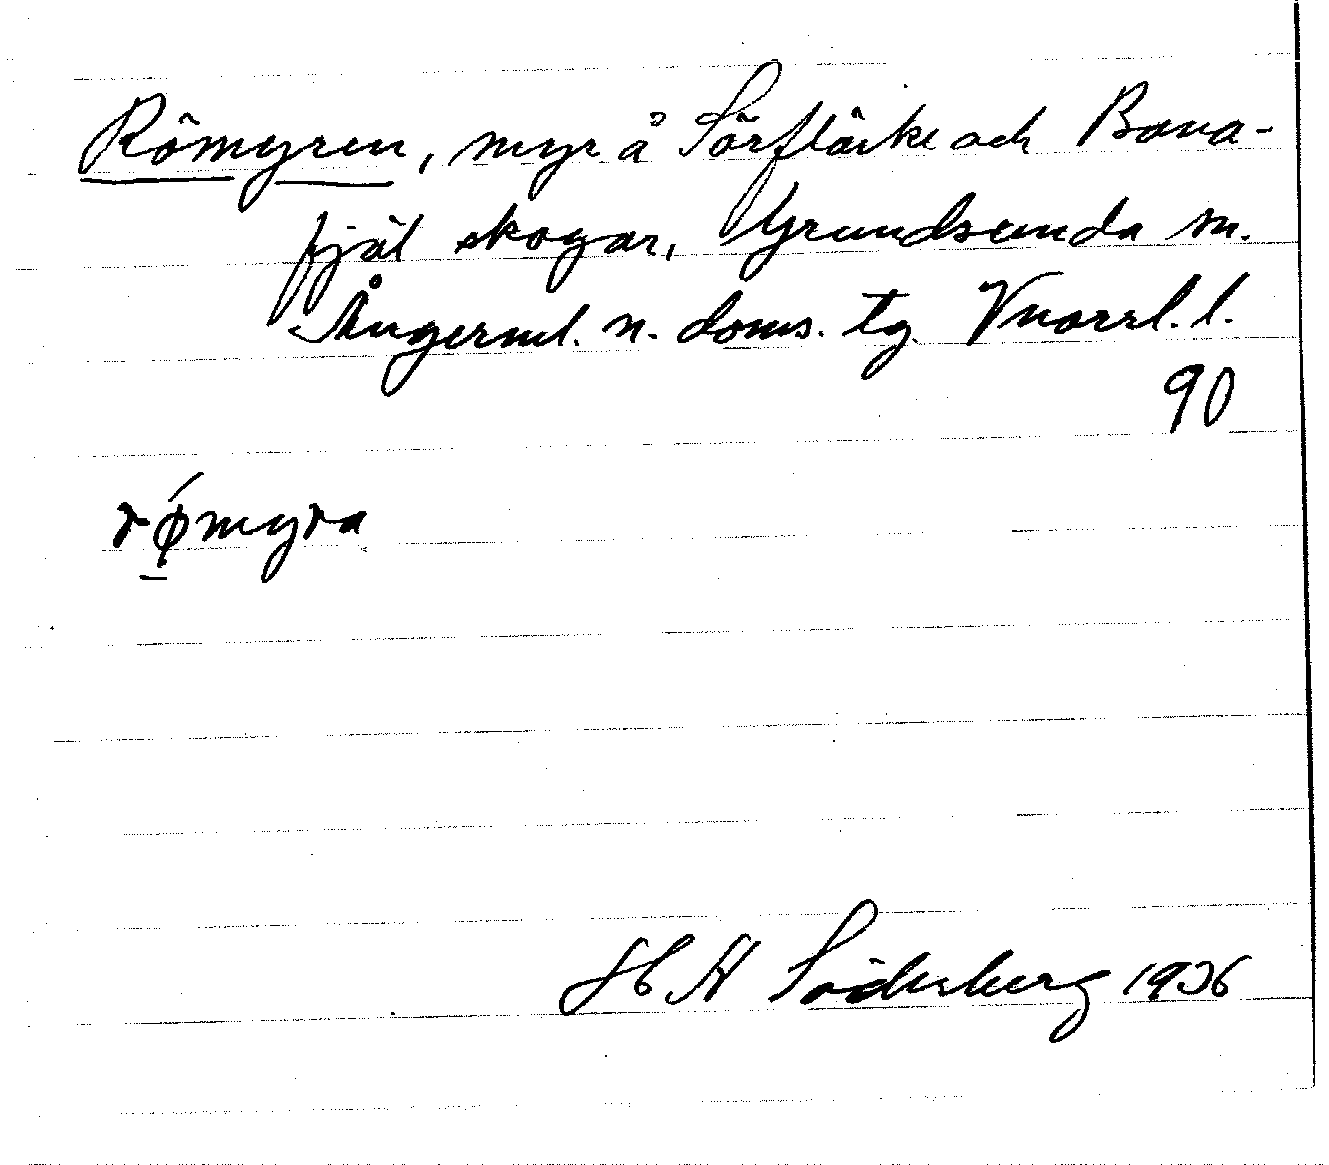 Römyren, myr å Sörflärke och Bana-
fjäl skogar, Grundsunda sn.
Ångerml. n. doms. tg. Vnorrl. l.
90
rǿ̱myra
H A Söderberg 1936